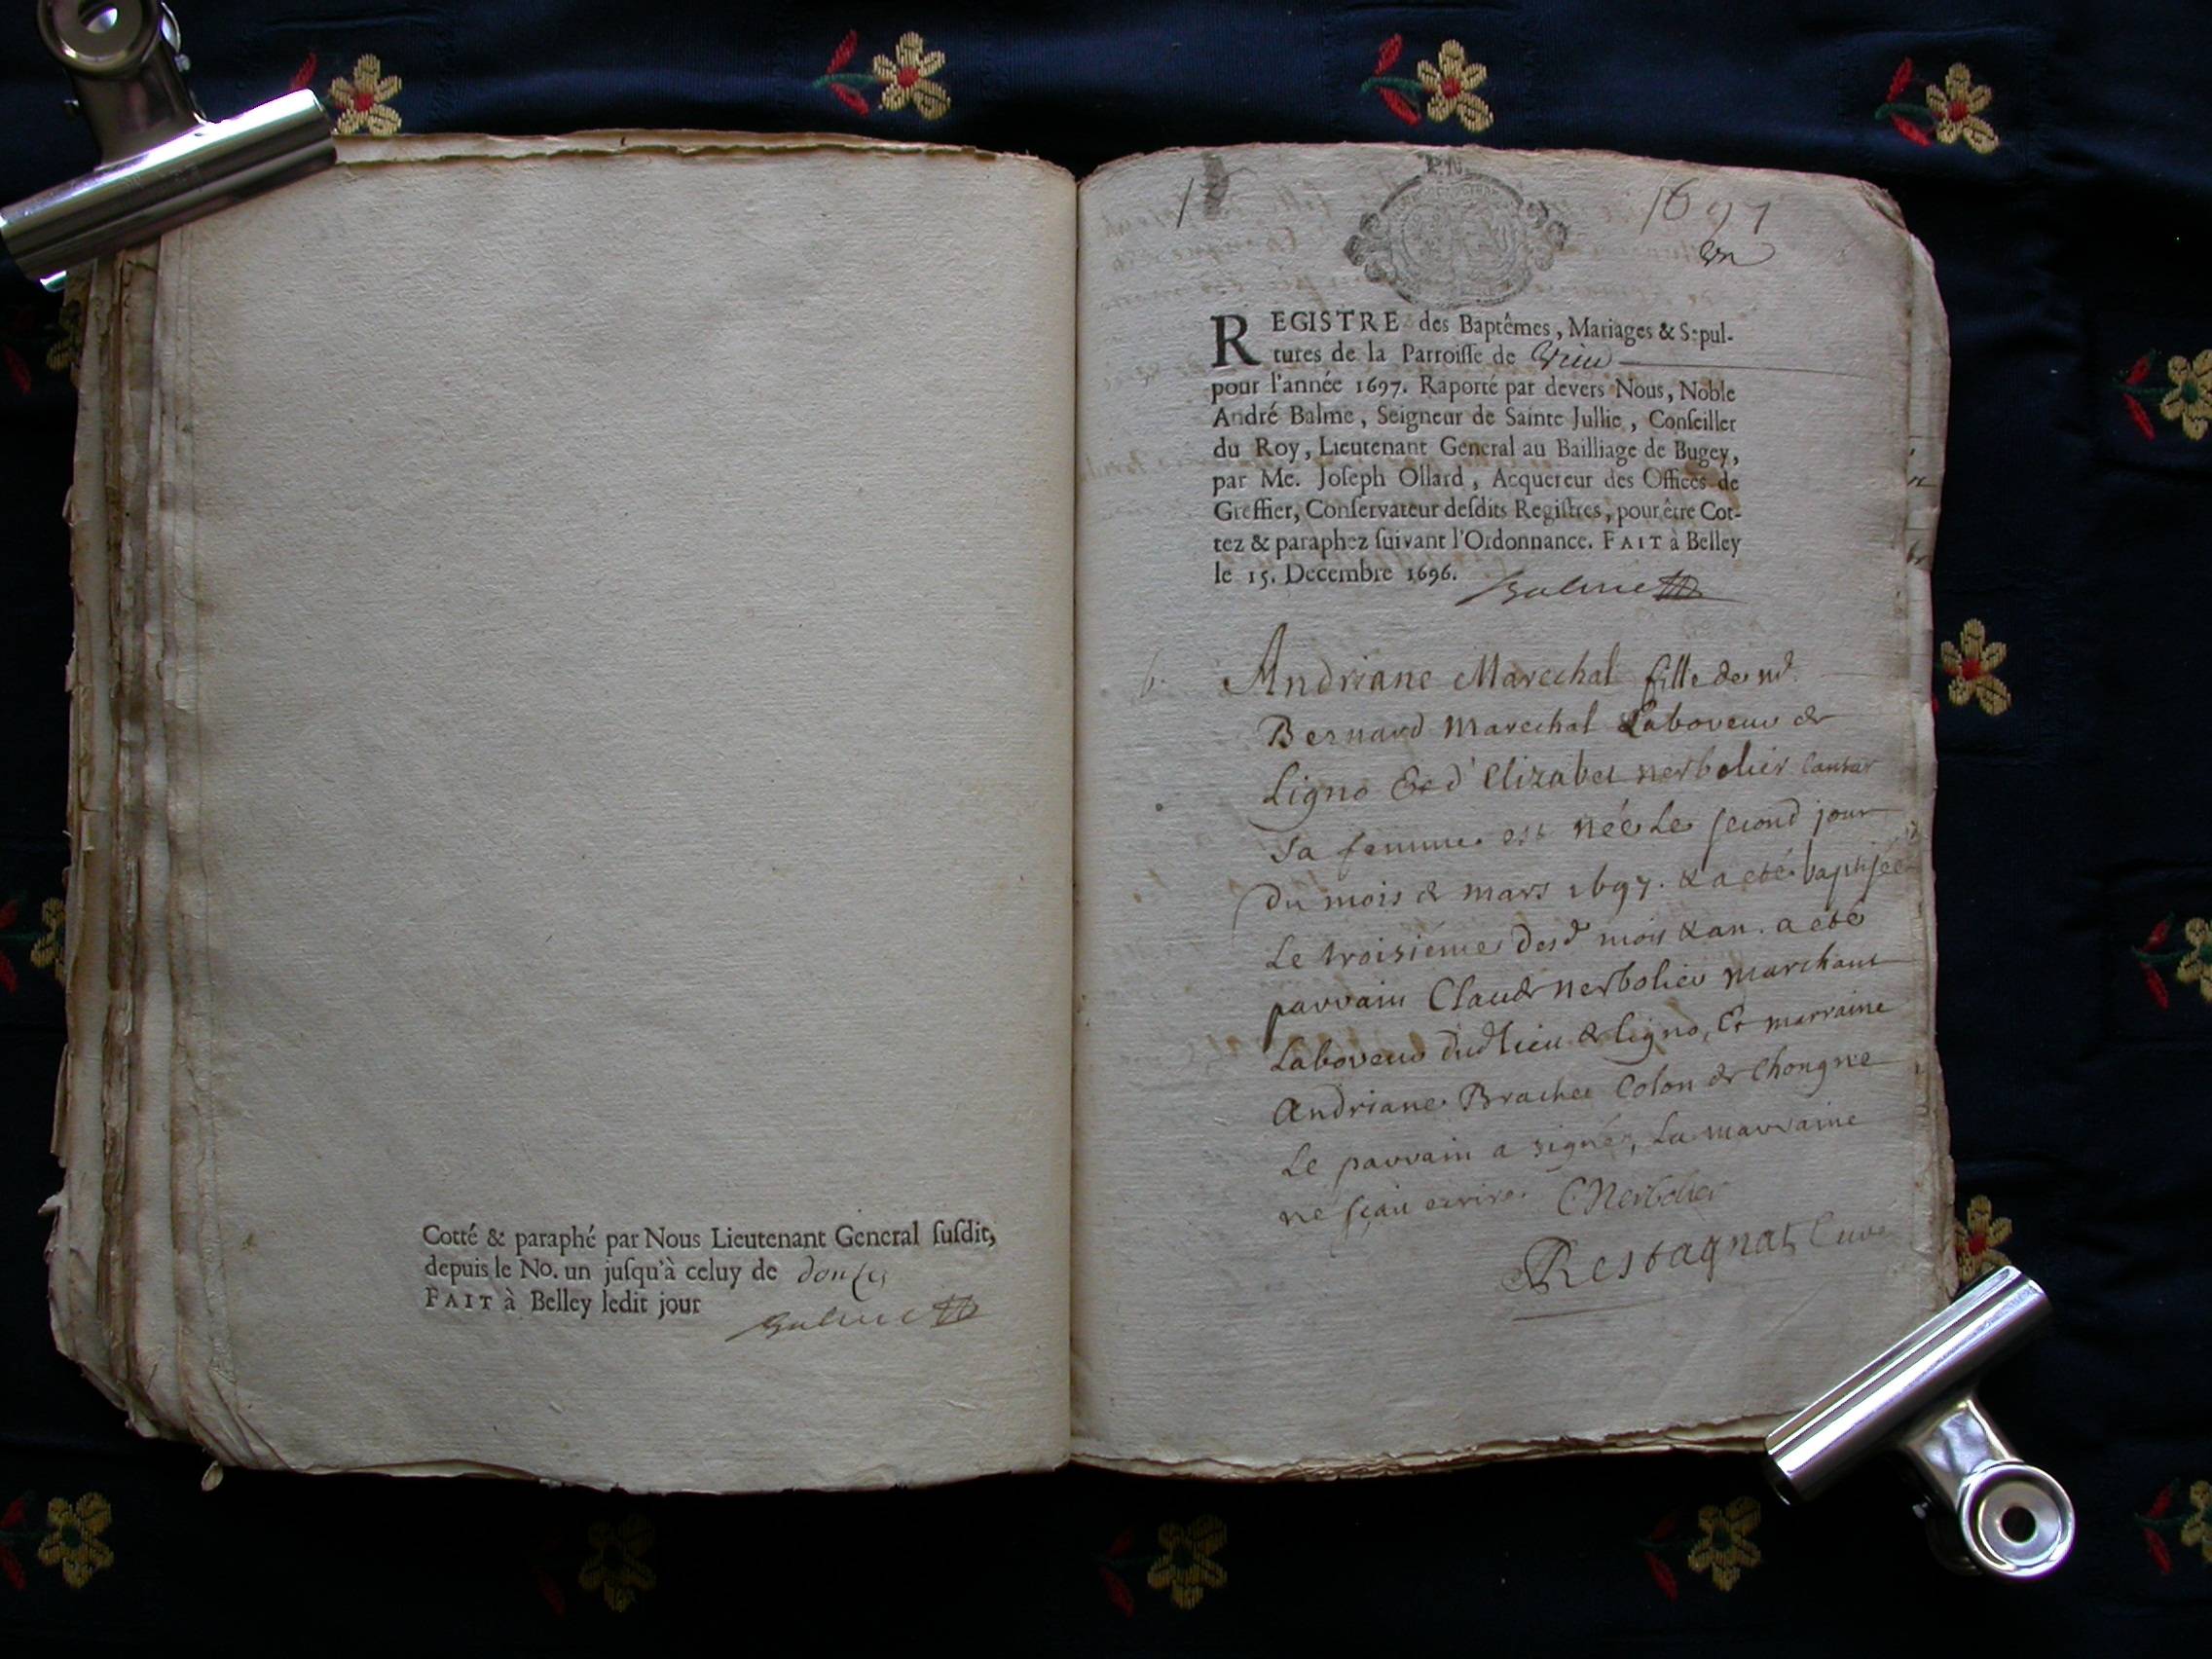 Cotté & paraphé par Nous Lieutenant General ſuſdit,
depuis le No. un juſqu'à celuy de douſe
FAIT à Belley ledit jour
Balme
1697
un
REGISTRE des Baptêmes, Mariages & Sepul-
tures de la Parroiſſe de
pour l'année 1697. Raporté par devers Nous, Noble
André Balme, Seigneur de Sainte Jullie, Conſeiller
du Roy, Lieutenant General au Bailliage de Bugey,
par Me. Joſeph Ollard, Acquereur des Offices de
Greffier, Conſervateur deſdits Regiſtres, pour être Cot-
tez & paraphez ſuivant l'Ordonnance. FAIT à Belley
le 15. Decembre 1696.
Balme
b.
Andriane Marechal fille de
Bernard Marechal Laboveur de
Ligno Et d'Elizabet nerbolier
sa femme est née le ſecond jour
du mois de mars 1697. & a eté baptiſée
Le troisiéme desd mois & an. a eté
parrain Claude nerbolier marchant
Laboveur dud lieu de ligno, Et marraine
Andriane Brachet Colon de Chongne
Le parrain a signé, La marraine
ne ſçait ecrire. C Nerbolier
Restagnat, Curé